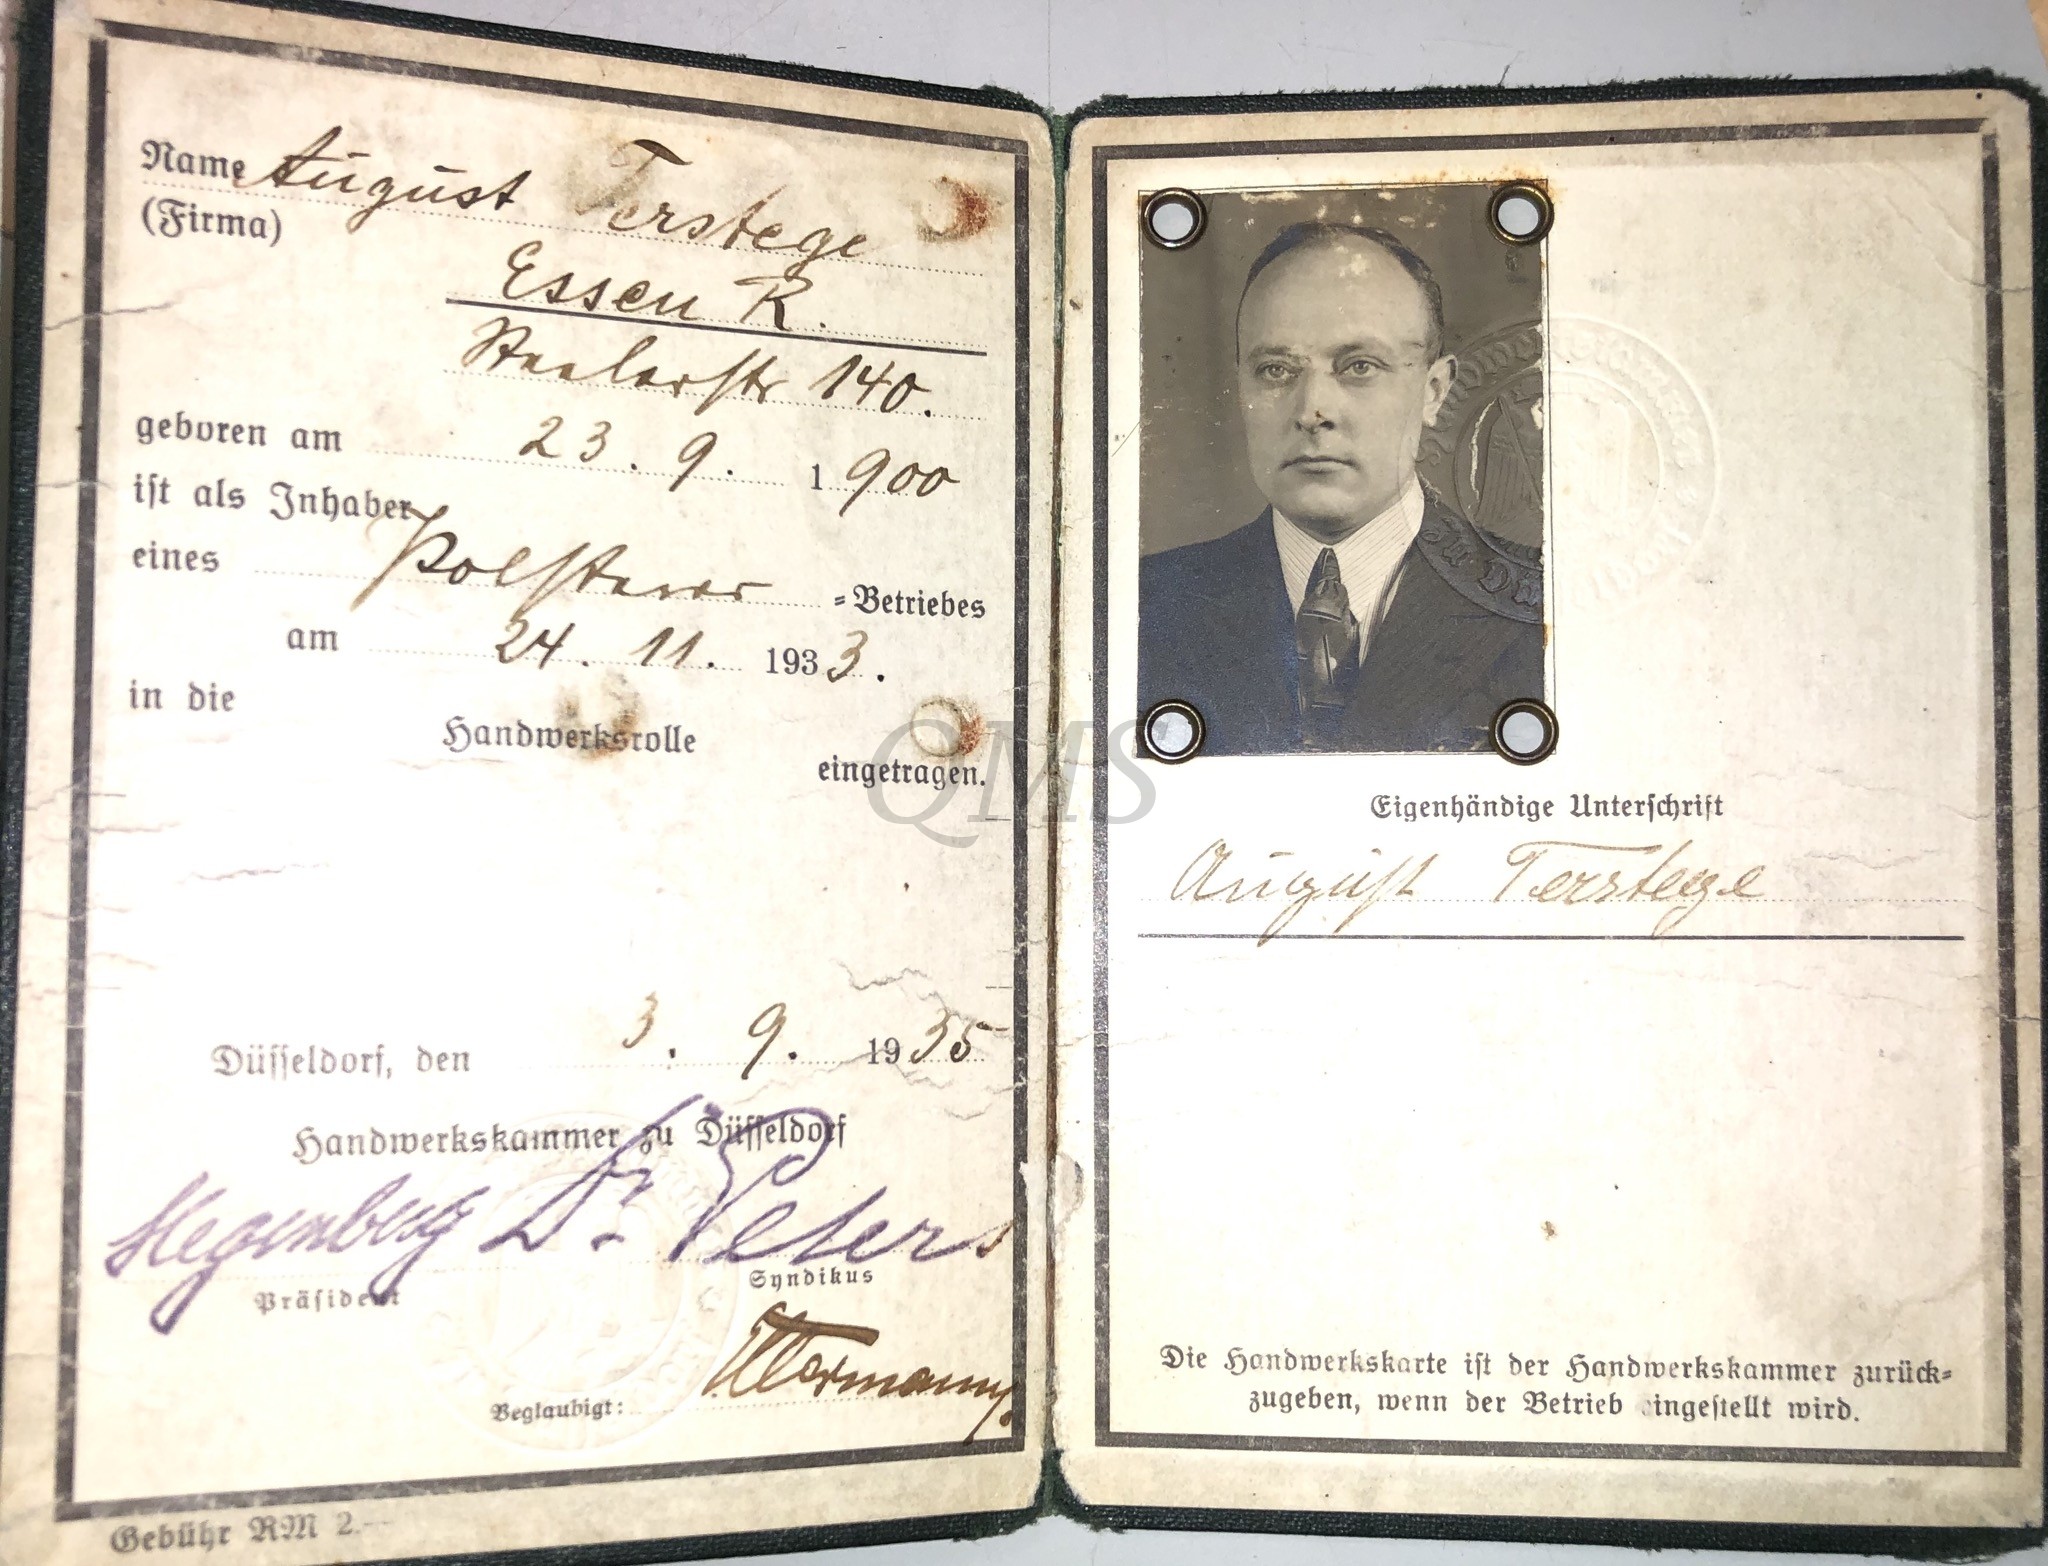 Name August Terstege
(Firma)
Essen R.
Steelerstr 140.
geboren am 23. 9. 1900
ist als Inhaber
eines Polsterer =Betriebes
am 24. 11. 1933.
in die
Handwerksrolle
eingetragen.
Düsseldorf, den 3. 9. 1935
Handwerkskammer zu Düsseldorf
Hegenberg Dr. Peters
Präsident
Syndikus
Beglaubigt:
Gebühr RM 2.—
QMS
Eigenhändige Unterschrift
August Terstege
Die Handwerkskarte ist der Handwerkskammer zurück=
zugeben, wenn der Betrieb eingestellt wird.